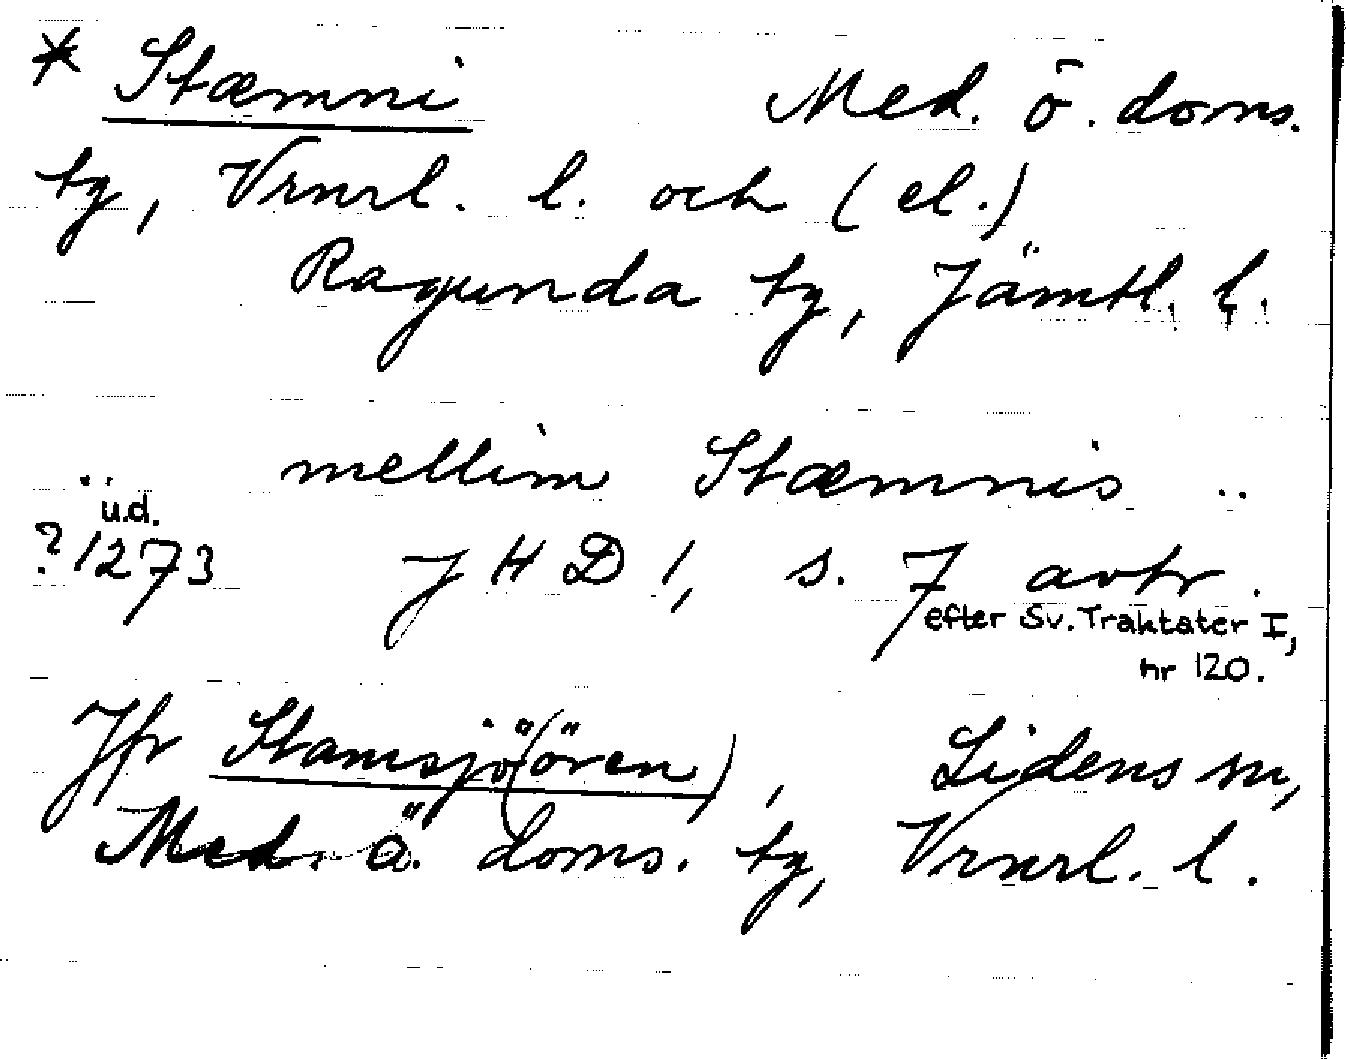 * Stæmni Med. ö. doms.
tg, Vrnrl. l. och (el.)
Ragunda tg, Jämtl. l.
.. mellim Stæmnis ..
u.d.
?1273 JHD 1, s. 7 avtr.
efter Sv. Traktater I,
nr 120.
Jfr Stamsjö(ören), Lidens sn,
Med. ö. doms. tg, Vrnrl. l.